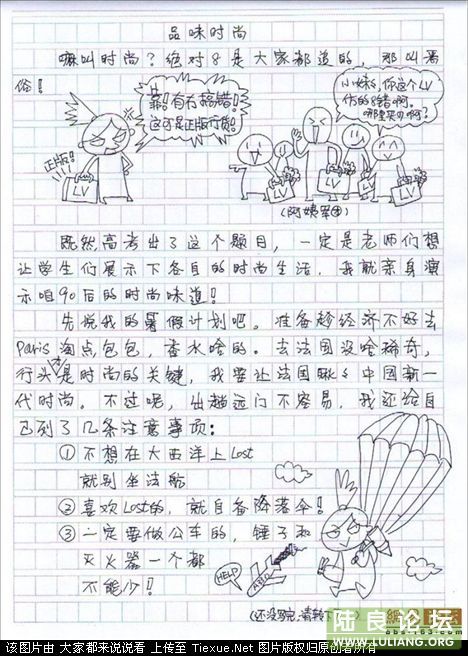 品味时尚
嘛叫时尚？绝对8是大家都道的，那叫恶
俗！
靠！有冇搞错！
这可是正版行货！
正版！
LV
小妹，你这个LV
仿的8错啊。
哪里买的啊？
LV
LV
LV
(阿姨军团)
既然高考出了这个题目，一定是老师们想
让学生们展示下各自的时尚生活，我就亲身演
示咱90后的时尚味道！
先说我的暑假计划吧。准备趁经济不好去
Paris淘点包包，香水啥的。去法国没啥稀奇，
行头才是时尚的关键，我要让法国瞅瞅中国新一
代时尚。不过呢，出趟远门不容易，我还给自
己列了几条注意事项：
① 不想在大西洋上Lost
就别坐法航
② 喜欢Lost的，就自备降落伞！
③ 一定要做公车的，锤子和
灭火器一个都
不能少！
HELP
(还没写完，请转下
陆良论坛
WWW.LULIANG.ORG
该图片由 大家都来说说看 上传至 Tiexue.Net 图片版权归原创者所有